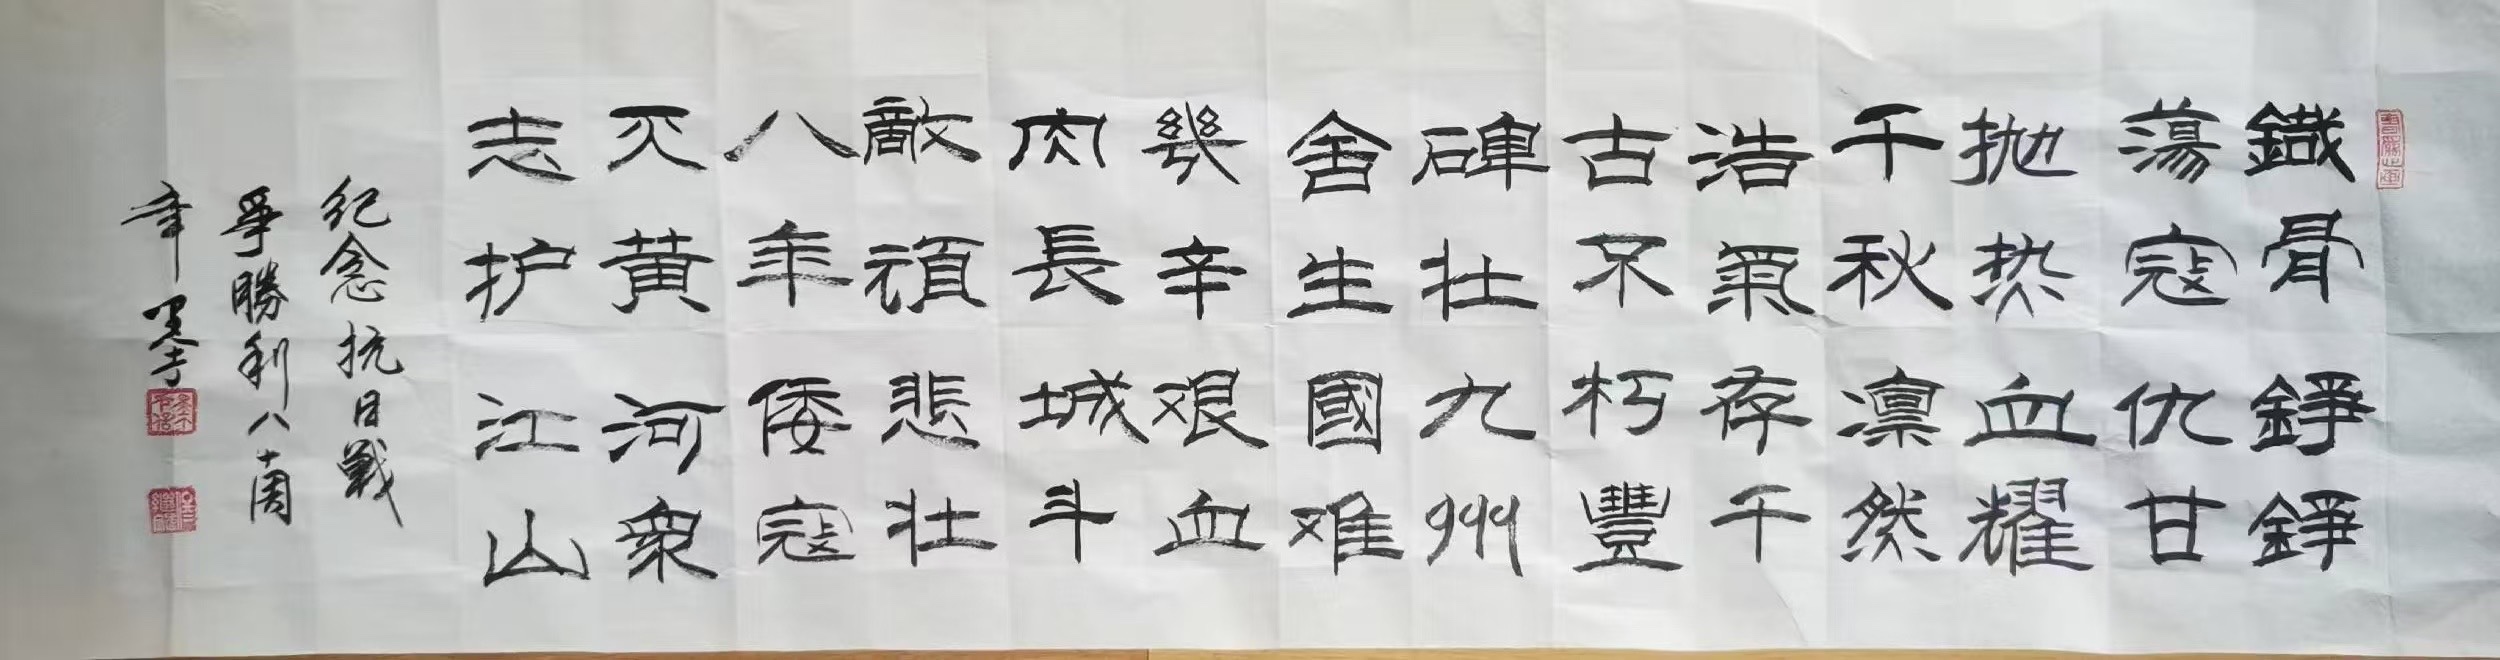 鐵骨錚錚
蕩寇仇甘
抛热血耀
千秋凛然
浩氣存千
古不朽豐
碑壮九州
舍生國难
幾辛艰血
肉長城斗
敵頑悲壮
八年倭寇
灭黄河衆
志护江山
纪念抗日戰
爭勝利八十周
年